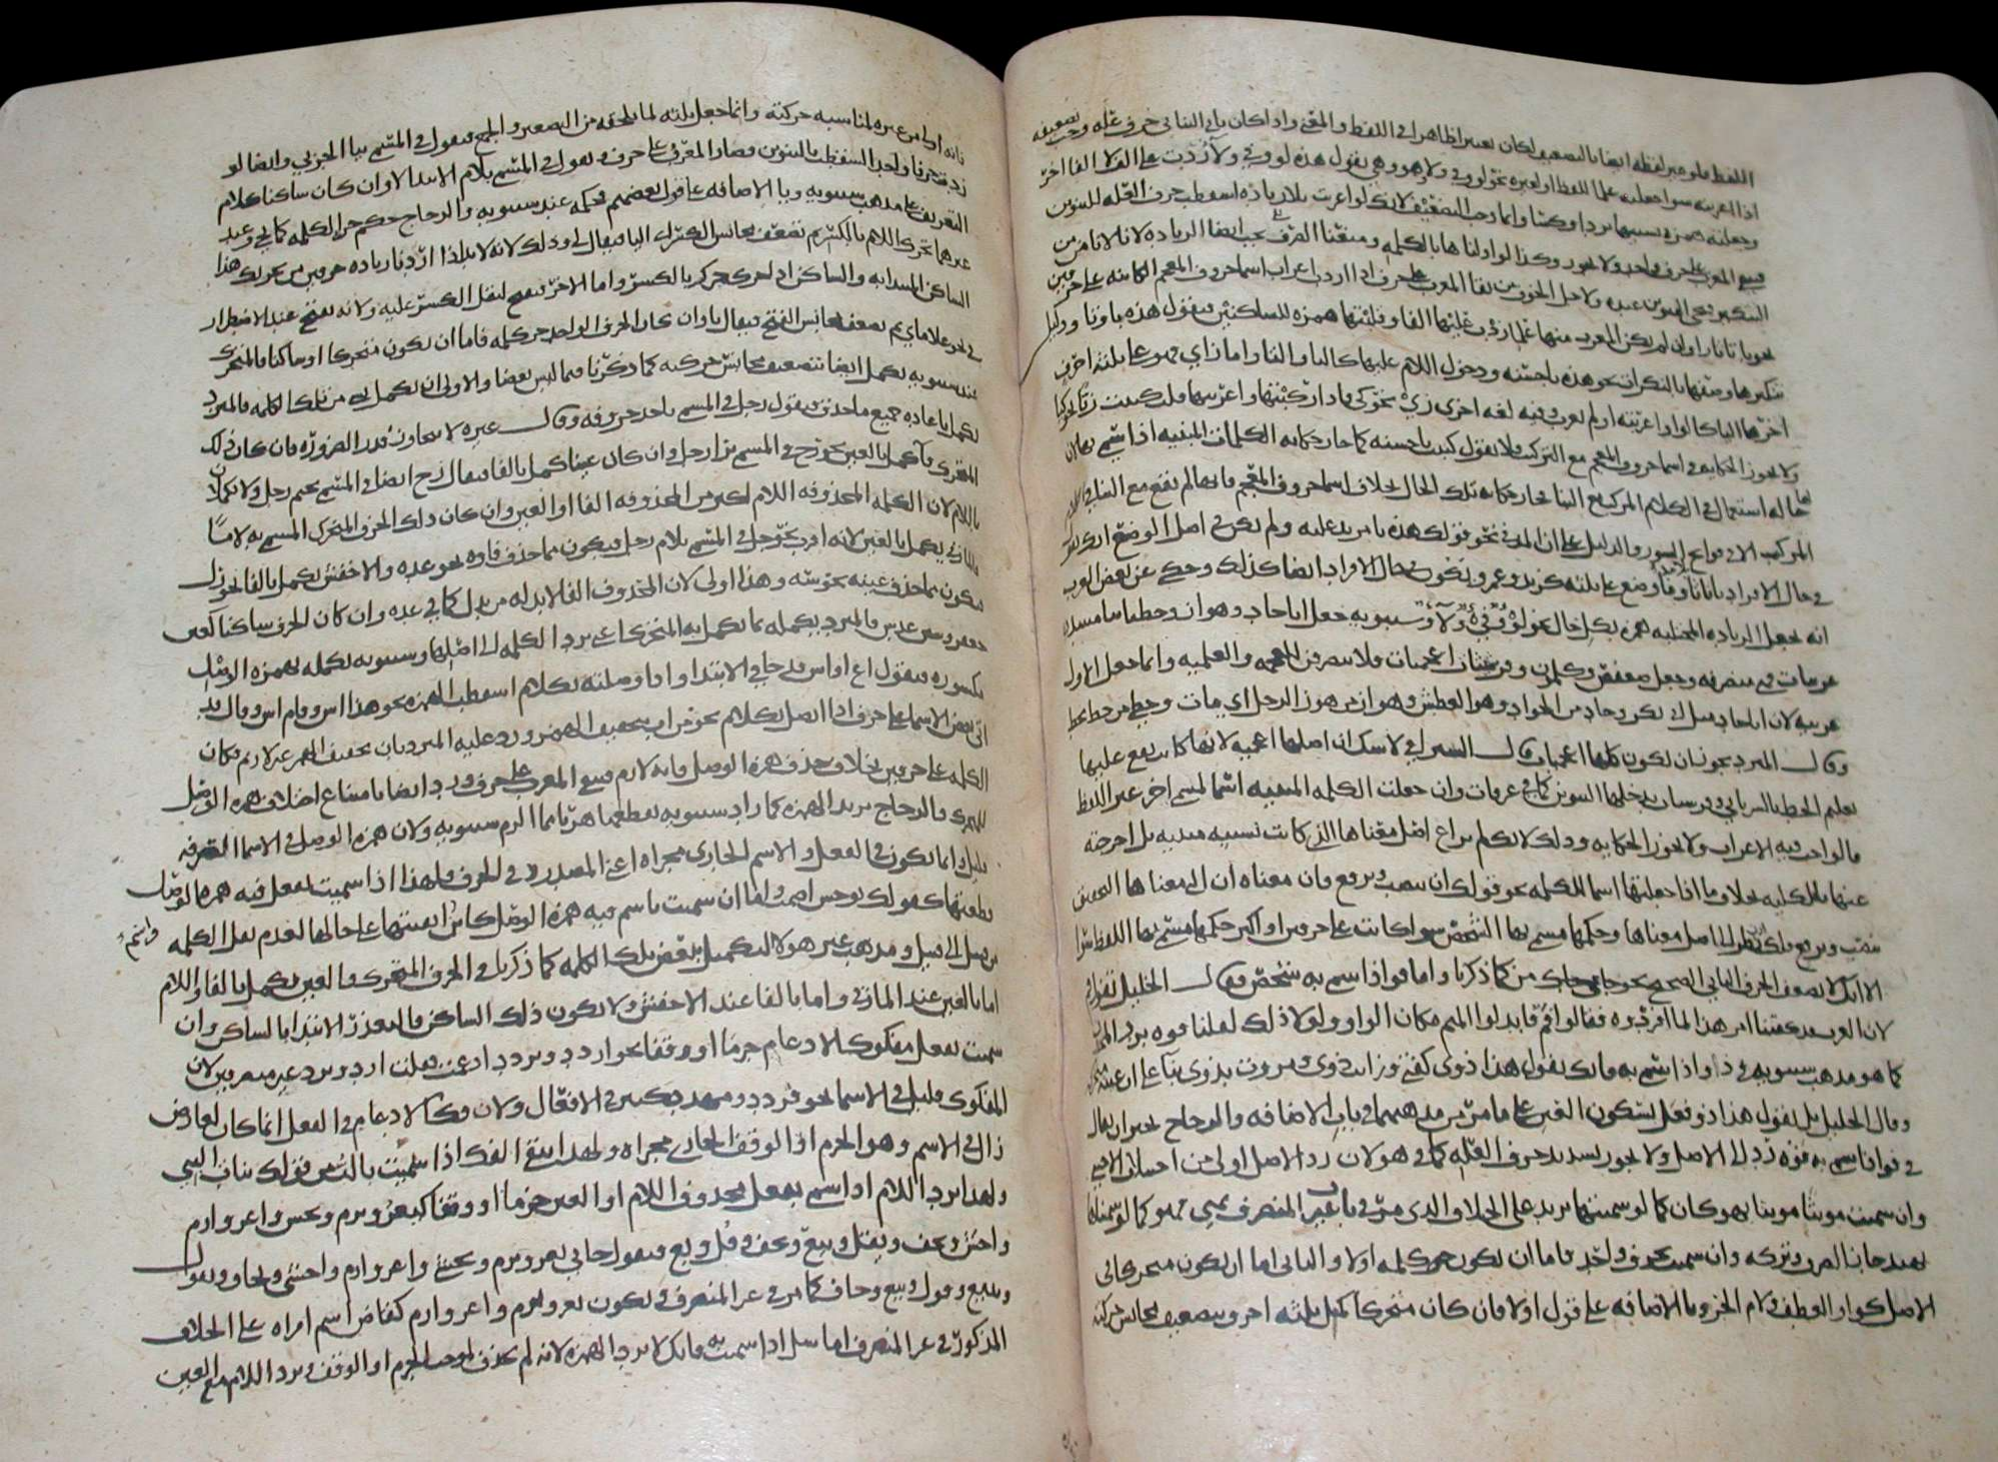 اللفظ فلو غير لفظه ايضا بالتضعيف لكان تغييرا ظاهرا في اللفظ والمعنى واذا كان ثاني الثنائي حرف علة وجب تضعيفه
اذا اعربته سوا جعلته علما للفظ او لغيره نحو لو وفي ولا وهو وهي يقول هذه لو وفي ولا زدت على الف لا الفا اخر
وجعلته همزة تشبيها برداء وكساء وانما وجب التضعيف لانك لو اعربت بلا زيادة اسقطت حرف العلة للتنوين
فيبقى المعرب على حرف واحد ولا يجوز
التنكير يجي التنوين
نحو با تا ثا را وان لم يكن المعرب منها علما زدت عليها الفا وقلبتها همزة للساكنين فيقول هذه باء وتاء ودليل
تنكيرها وصفها بالنكرات نحو هذه باء حسنة ودخول اللام عليها كالباء والتاء واما زاي فهو على ثلثة احرف
اخرها الياء كالواو اعربته او لم تعرب وفيه لغة اخرى زي نحو كي فاذا ركبتها واعربتها قلت كتبت زيا نحو كيا
ولا يجوز الحكاية في اسما حروف المعجم مع التركيب فلا يقول كتبت با حسنة كما جاز حكاية الكلمات المبنية اذا سمي بها لان
لها حالة استعمال في الكلام المركب مع البنا فجاز حكاية تلك الحال بخلاف اسما حروف المعجم فانها لم تقع مع البنا في الكلام
المركب الا في فواتح السور والدليل على ان المد في نحو قولك هذه باء مزيد عليه ولم يكن في اصل الوضع انك تقول
في حال الافراد با تا ثا وما وضع على ثلثة كزيد وعمرو يكون حال الافراد ايضا كذلك وحكى عن بعض العرب
انه يجعل الزيادة المجتلبة همزة بكل حال نحو لوء وفيء ولاء وسيبويه جعل ابا جاد وهواز وحطيا
عربيات فهي منصرفة وجعل سعفص وكلمن وقرشيات اعجميات فلا تنصرف للعجمة والعلمية وانما جعل الاول
عربية لان ابا جاد مثل ابي بكر وجاد من الجواد وهو العطش وهواز من هوز الرجل اي مات وحطي من حط يحط
وقال المبرد يجوز ان تكون كلها اعجميات وقال السيرافي لا شك ان اصلها اعجمية لانها كان يقع عليها
تعليم الخط بالسرياني وقرشيات يدخلها التنوين كما في عرفات وان جعلت الكلمة المبنية اسما لمسمى اخر غير اللفظ
فالواجب فيه الاعراب ولا يجوز الحكاية وذلك لانك لم تراع اصل معناها الذي كانت بسببه مبنية بل اخرجته
عنها بالكلية بخلاف ما اذا جعلتها اسما للكلمة نحو قولك ان تنصب وترفع فان معناه ان التي معناها التحقيق
تنصب وترفع فلك نظر الى اصل معناها وحكمها مسمى بها الشخص سوا كانت على حرفين او اكثر حكمها مسمى بها اللفظ سوا
الا انك لا تضعف الحرف الثاني الصحيح نحو جاني من كما ذكرنا واما فو اذا سمي به شخص فقال الخليل تقول فم
لان العرب قد كفتنا امر هذا لما افردوه فقالوا فم فابدلوا الميم مكان الواو ولولا ذلك لقلنا فوه برد المحذوف
كما هو مذهب سيبويه في ذا واذا سمي به فانك تقول هذا ذوى كفتى ورايت ذوى ومررت بذوى بناء على ان عينه
وقال الخليل بل تقول هذا ذو فعل بسكون العين على ما مر من مذهبهما في باب الاضافة والزجاج
في فو اذا سمي به فوه رد الى الاصل ولا يجوز تشديد حرف العلة كما في هو لان رد الاصل اولى من اجتلاب الاجنبي
وان سميت مونثا فهو كان كما لو سميتها بزيد على الخلاف الذي مر في باب غير المنصرف
بعد جاز الصرف وتركه وان سميت بحرف واحد فاما ان يكون جزء كلمة او لا والثاني اما ان يكون متحركا في
الاصل كواو العطف ولام الجر وياء الاضافة على قول اولا فان كان متحركا كمل ثلثة احرف بتضعيف مجانس حركته
فانه اولى من غيره لمناسبة حركته وانما جعل ثلثة لما يلحقه من التصغير والجمع فيقول في المسمى ببا الجر بي وايضا لو
زدت حرفا واحدا لسقط بالتنوين فصار المعرب على حرف وتقول في المسمى بلام الابتدا لاء وان كان ساكنا كلام
التعريف على مذهب سيبويه ويا الاضافة على قول بعضهم فحكمه عند سيبويه والزجاج حكم جزء الكلمة كما يجي وعند
غيرهما تحرك اللام بالكسر ثم تضعف مجانس الكسر اي اليا فيقال لي وذلك لانه لا بد اذا اردنا زيادة حرفين من تحريك هذا
الساكن المبتدا به والساكن اذا حرك حرك بالكسر واما الاخر فيفتح لثقل الكسر عليه ولانه يفتح عند الاضطرار
في نحو غلاماي ثم يضعف مجانس الفتح فيقال ياء وان كان الحرف الواحد جزء كلمة فاما ان يكون متحركا او ساكنا فالمتحرك
عند سيبويه يكمل ايضا بتضعيف مجانس حركته كما ذكرنا فيما ليس بعضا والاولى ان يكمل من تلك الكلمة فالمبرد
يكمل باعادة جميع ما حذف فيقول رجل في المسمى باحد حروفه وقال غيره لا يتجاوز قدر الضرورة فان كان ذلك
المتحرك فاء كمل بالعين نحو رج في المسمى برا رجل وان كان عينا كمل بالفا فيقال رج ايضا في المسمى بجيم رجل ولا يكمل
باللام لان الكلمة المحذوفة اللام اكثر من المحذوفة الفا او العين وان كان ذلك الحرف المتحرك المسمى به لاما
فالمازني يكمل بالعين لانه اقرب نحو جل في المسمى بلام رجل فيكون مما حذف فاوه نحو عدة والاخفش يكمل بالفا نحو رل
فيكون مما حذف عينه نحو سه وهذا اولى لان المحذوف الفا لابد له من بدل كما في عدة وان كان الحرف ساكنا كعين
جعفر وسين عدس فالمبرد يكمله بما يكمل به المتحرك اعني برد الكلمة الى اصلها وسيبويه يكمله بهمزة الوصل
مكسورة فيقول اع او اس في الابتدا واذا وصلته بكلام اسقط الهمزة نحو هذا اس وقام اس وقال قد
اتى بعض الاسما على حرف اذا اتصل بكلام نحو من اب بتخفيف الهمزة ورد عليه المبرد بان تخفيف الهمز غير لازم فكان
الكلمة على حرفين بخلاف حذف همزة الوصل فانه لازم فيبقى المعرب على حرف ورد ايضا بامتناع اجتلاب همزة الوصل
للمتحرك والزجاج يزيد الهمزة كما زاد سيبويه يقطعها هربا مما الزم سيبويه ولان همزة الوصل في الاسما الصرفة
قليل وانما يكون في الفعل والاسم الجاري مجراه اعني المصدر وفي الحرف فلهذا اذا سميت بفعل فيه همزة الوصل
قطعتها كقولك بوحش اصمت واما ان سميت باسم فيه همزة الوصل كابن ابقيتها على حالها لعدم نقل الكلمة واسم
من قبيل الى قبيل ومذهب غير هولا التكميل ببعض تلك الكلمة كما ذكر قبل في الحرف المتحرك فالعين يكمل بالفا واللام
اما بالعين عند المازني واما بالفا عند الاخفش ولا يكون ذلك الساكن فاء لتعذر الابتدا بالساكن وان
سميت بفعل مفكوك الادغام جزما او وقفا نحو اردد ويردد ادغمت فقلت ارد ويرد غير منصرفين لان
المفكوك قليل في الاسما نحو قردد ومهدد وكثير في الافعال ولان فك الادغام في الفعل انما كان لعارض
زال في الاسم وهو الجزم او الوقف الجاري مجراه ولهذا يبقى الفك اذا سميت بالبب من قولك بنات البب
ولهذا يرد اللام اذا سمي بفعل محذوف اللام او العين جزما او وقفا كيغز ويرم ويخش واغز وارم
واخش ويخف ويقل ويبع وخف وقل وبع فيقول جاني يغز ويرم ويخشى واغز وارم واخشى ويخاف ويقول
ويبيع وقول وبيع وخاف كما مر في غير المنصرف فيكون يغز ويرم واغز وارم كقاض اسم امراة على الخلاف
المذكور في غير المنصرف اما سل اذا سميت به فانك لا ترد الهمزة لانه لم تحذف لموجب الجزم او الوقف ويرد اللام مع العين